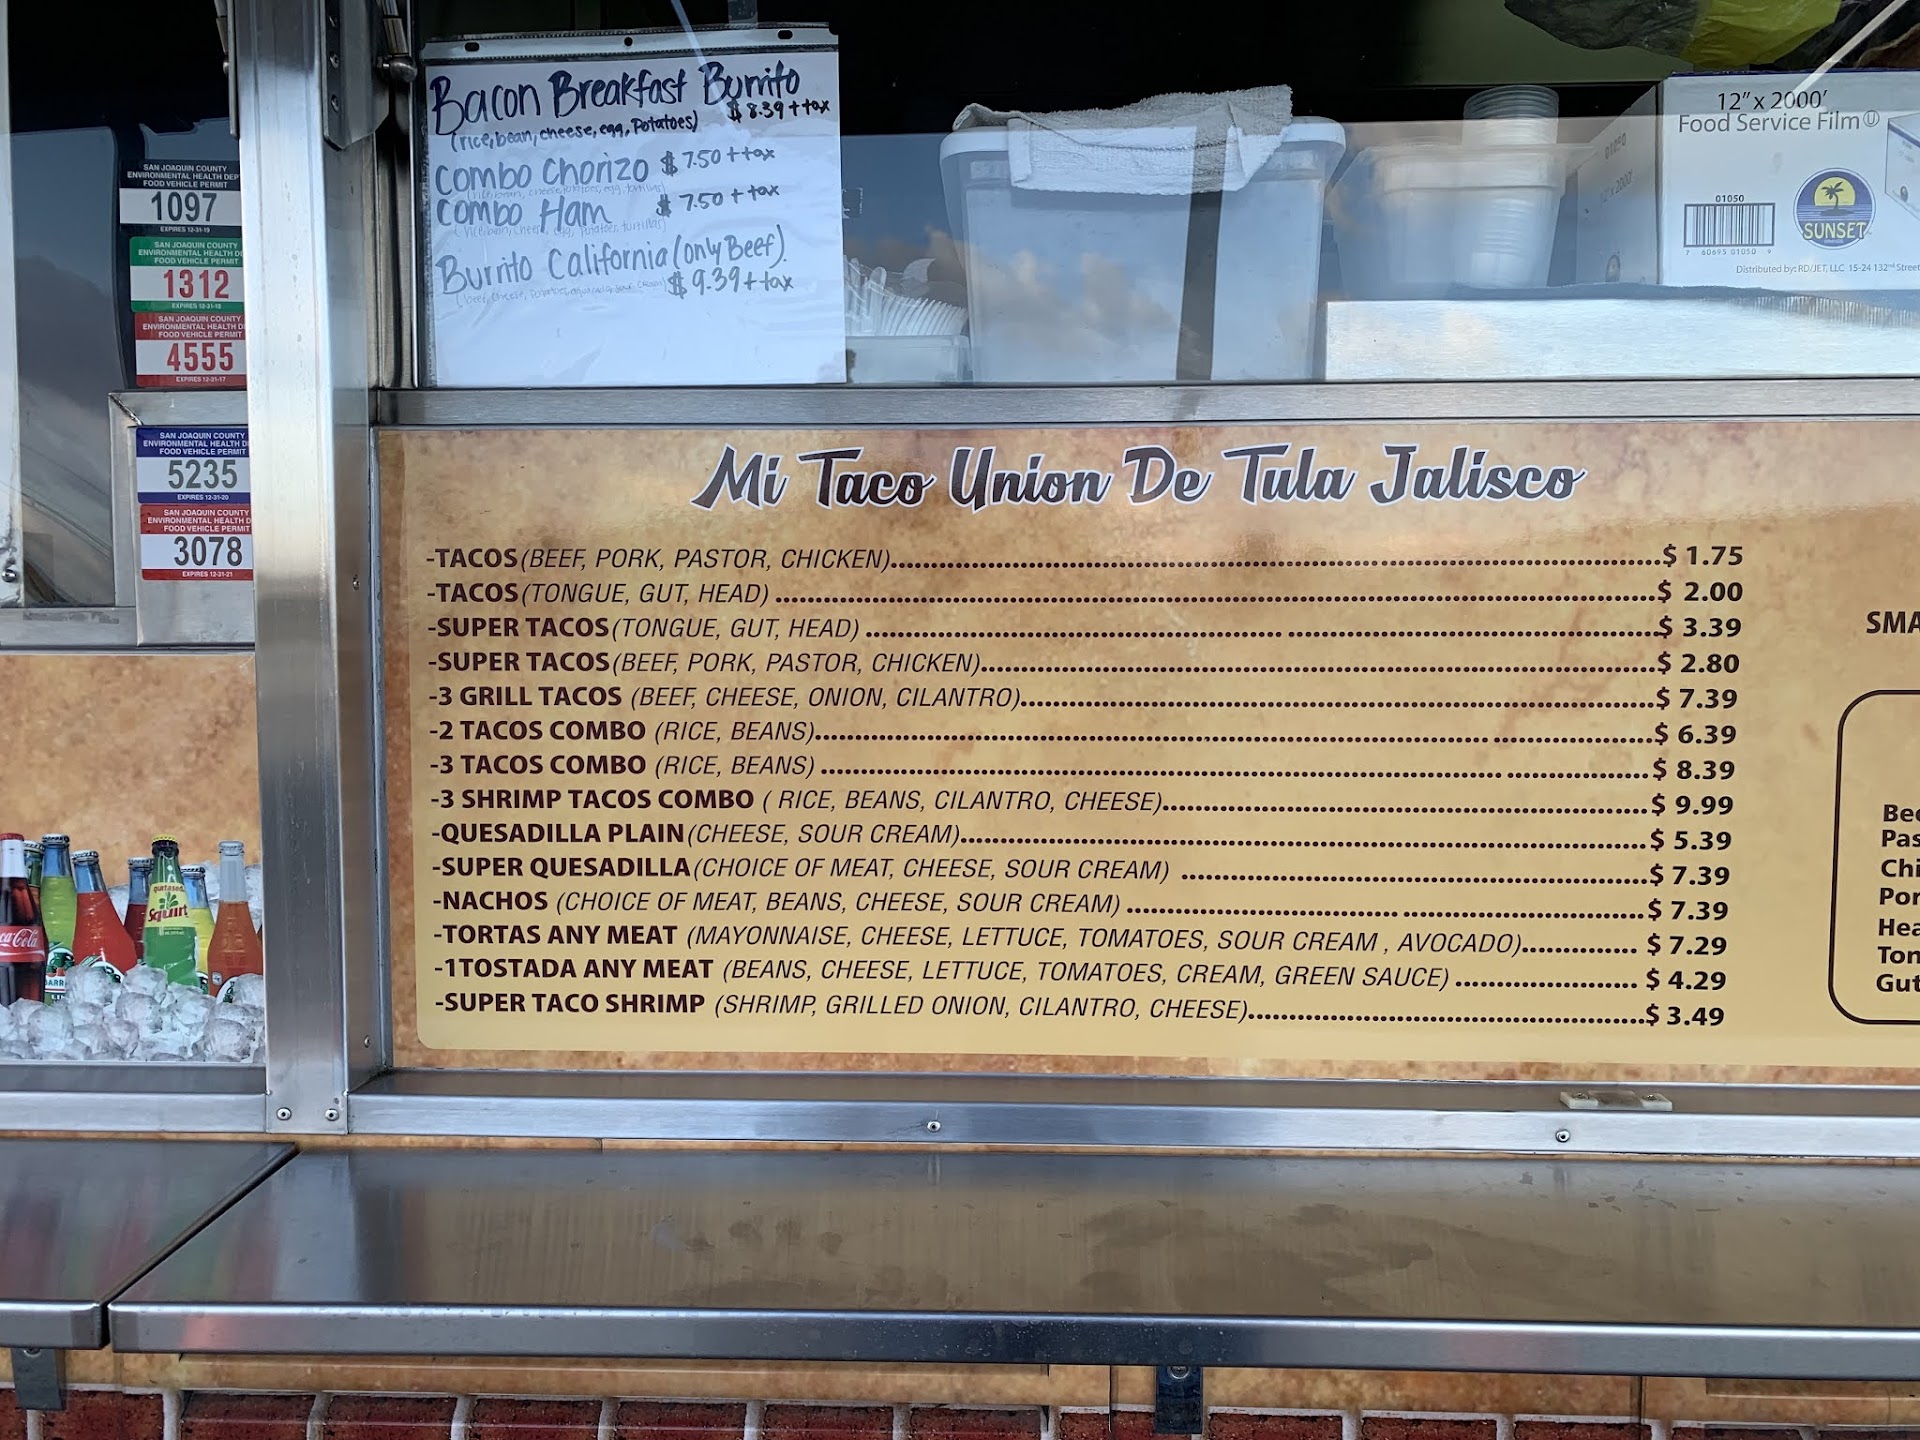 Bacon Breakfast Burrito
$8.39 + tax
(rice, bean, cheese, egg, Potatoes)
Combo Chorizo $7.50 + tax
Combo Ham $7.50 + tax
Burrito California (only Beef).
$9.39 + tax
12" x 2000'
Food Service Film
01050
7 60695 01050 9
SUNSET
Distributed by: RD/JET, LLC 15-24 132nd Street
SAN JOAQUIN COUNTY
ENVIRONMENTAL HEALTH DEP
FOOD VEHICLE PERMIT
1097
EXPIRES 12-31-19
SAN JOAQUIN COUNTY
ENVIRONMENTAL HEALTH D
FOOD VEHICLE PERMIT
1312
EXPIRES 12-31-18
SAN JOAQUIN COUNTY
ENVIRONMENTAL HEALTH D
FOOD VEHICLE PERMIT
4555
EXPIRES 12-31-17
SAN JOAQUIN COUNTY
ENVIRONMENTAL HEALTH D
FOOD VEHICLE PERMIT
5235
EXPIRES 12-31-20
SAN JOAQUIN COUNTY
ENVIRONMENTAL HEALTH D
FOOD VEHICLE PERMIT
3078
EXPIRES 12-31-21
Mi Taco Union De Tula Jalisco
-TACOS (BEEF, PORK, PASTOR, CHICKEN)...$ 1.75
-TACOS (TONGUE, GUT, HEAD) ...$ 2.00
-SUPER TACOS (TONGUE, GUT, HEAD) ...$ 3.39
-SUPER TACOS (BEEF, PORK, PASTOR, CHICKEN)...$ 2.80
-3 GRILL TACOS (BEEF, CHEESE, ONION, CILANTRO)...$ 7.39
-2 TACOS COMBO (RICE, BEANS)...$ 6.39
-3 TACOS COMBO (RICE, BEANS) ...$ 8.39
-3 SHRIMP TACOS COMBO ( RICE, BEANS, CILANTRO, CHEESE)...$ 9.99
-QUESADILLA PLAIN (CHEESE, SOUR CREAM)...$ 5.39
-SUPER QUESADILLA (CHOICE OF MEAT, CHEESE, SOUR CREAM) ...$ 7.39
-NACHOS (CHOICE OF MEAT, BEANS, CHEESE, SOUR CREAM) ...$ 7.39
-TORTAS ANY MEAT (MAYONNAISE, CHEESE, LETTUCE, TOMATOES, SOUR CREAM , AVOCADO)...$ 7.29
-1TOSTADA ANY MEAT (BEANS, CHEESE, LETTUCE, TOMATOES, CREAM, GREEN SAUCE) ...$ 4.29
-SUPER TACO SHRIMP (SHRIMP, GRILLED ONION, CILANTRO, CHEESE)...$ 3.49
SMA
Bee
Pas
Chi
Por
Hea
Ton
Gut
Coca-Cola
Squirt